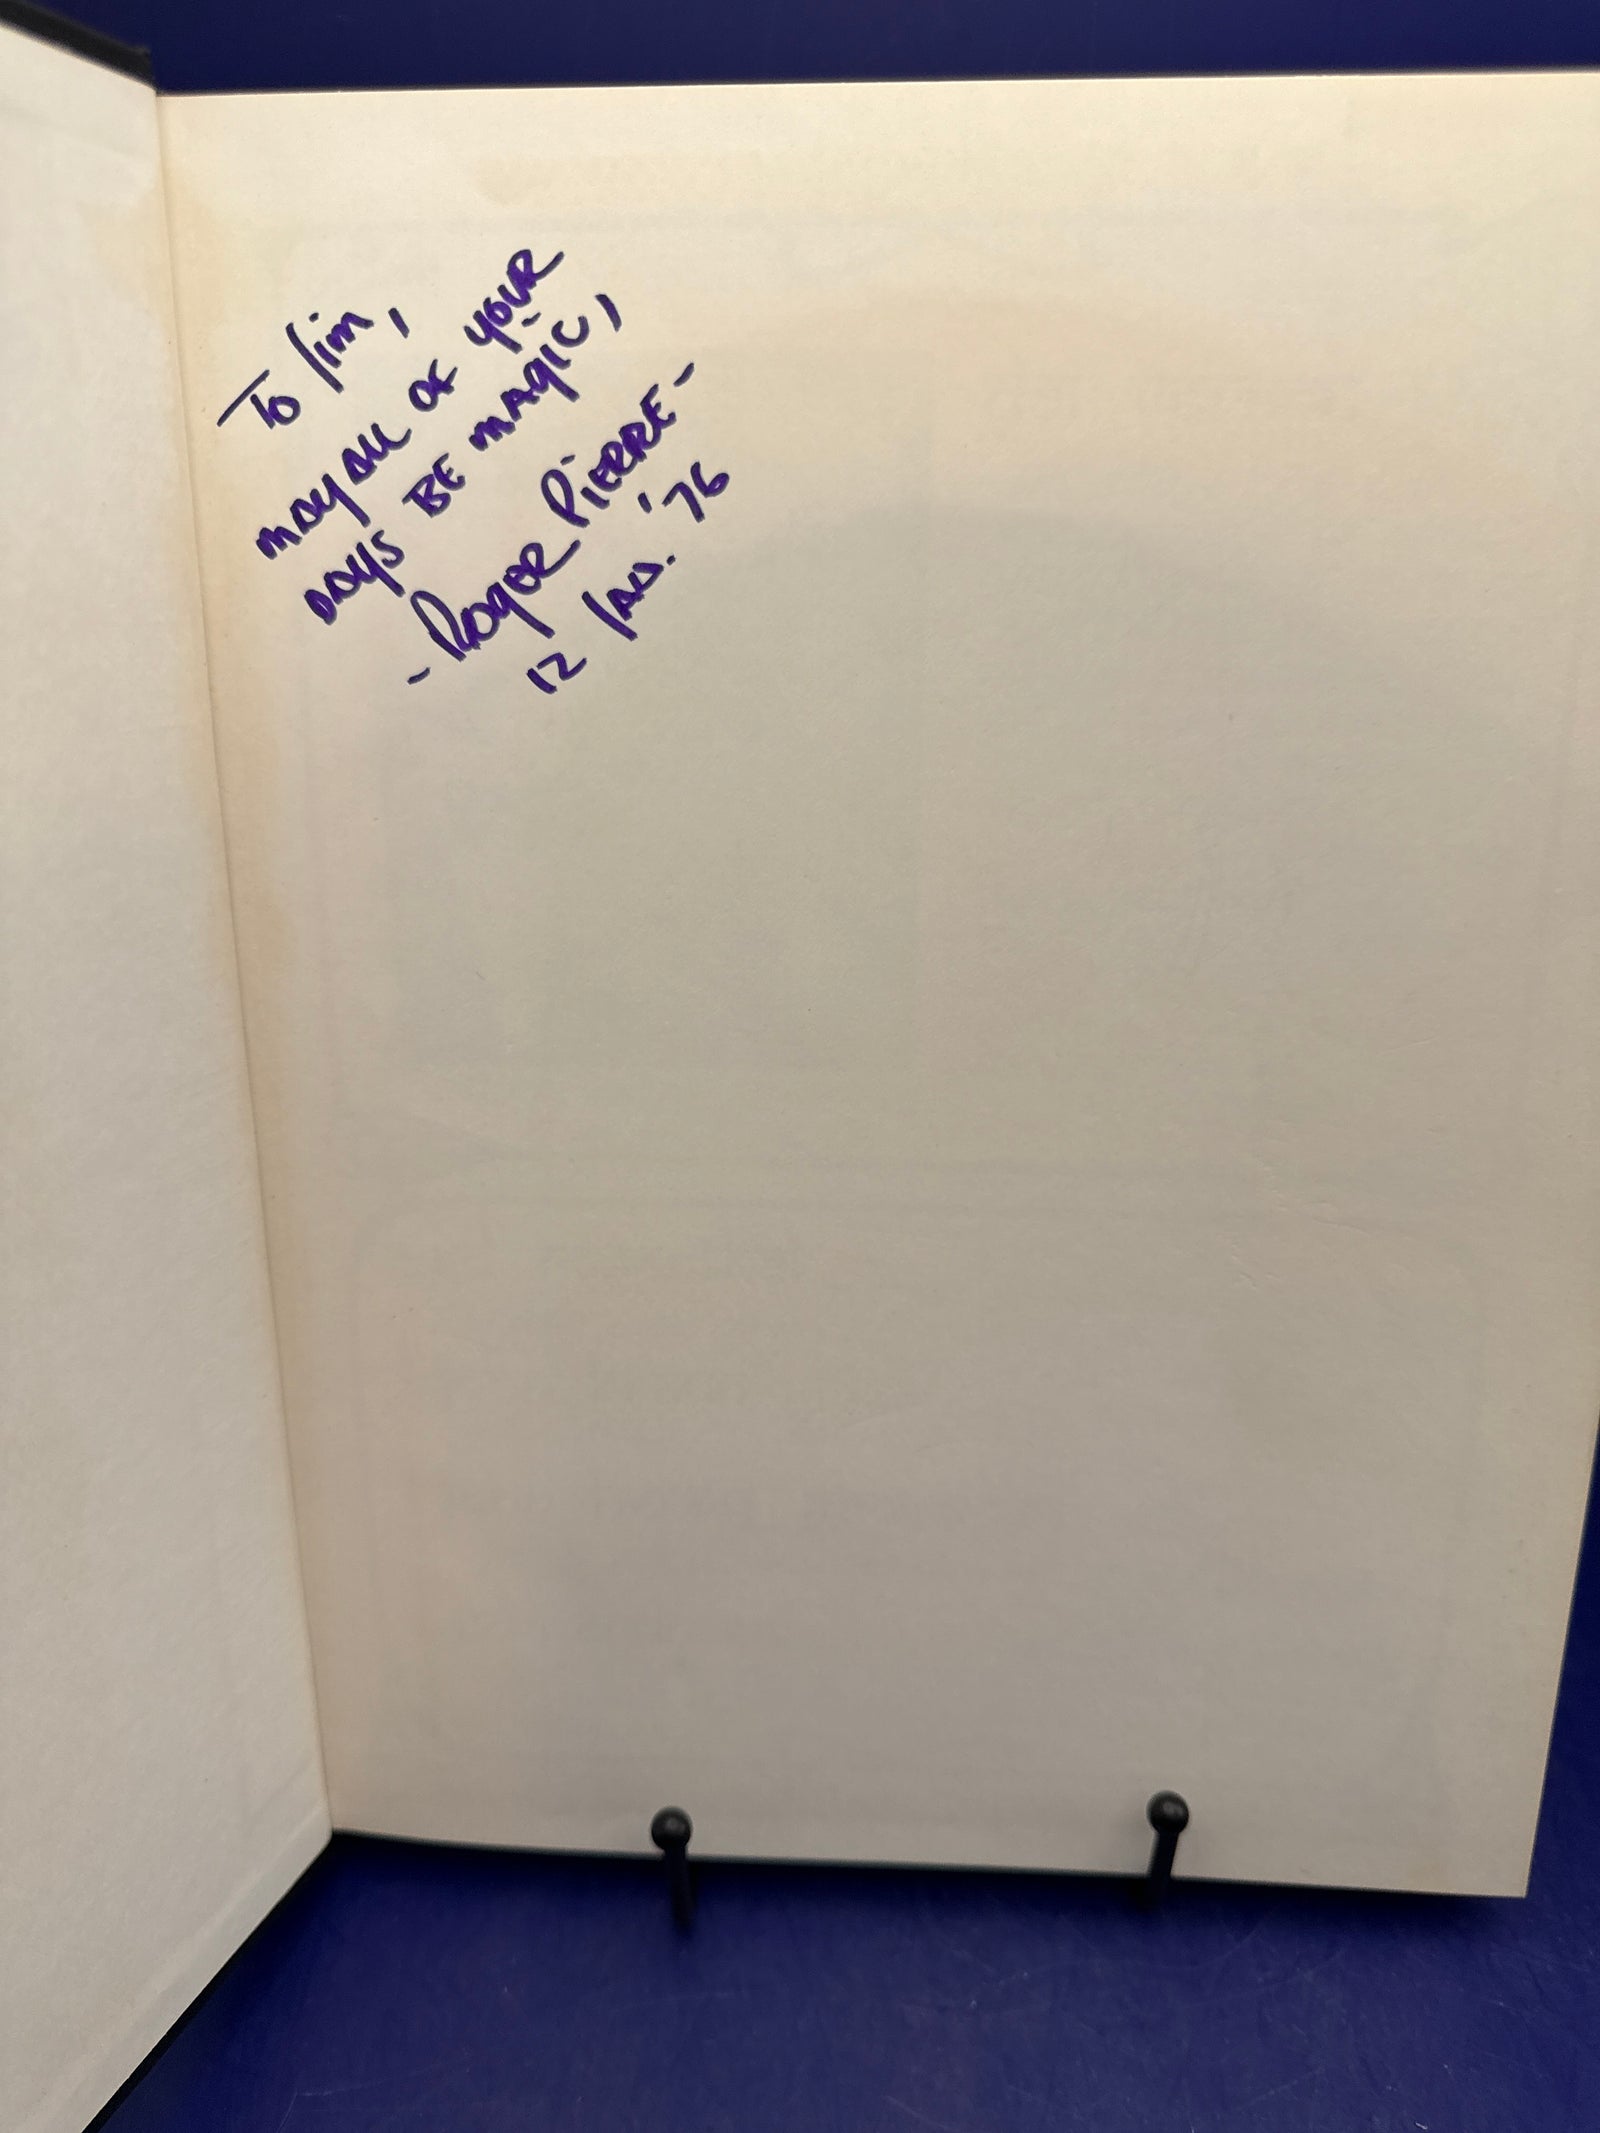 To Jim,
MAY ALL OF YOUR
DAYS BE MAGIC,
- ROGER PIERRE -
12 JAN. '76